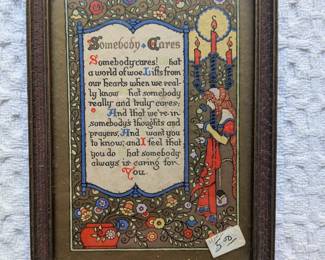 Somebody Cares
Somebody cares! hat
a world of woe Lifts from
our hearts when we real-
ly know hat somebody
really and truly cares;
And that we're in
somebody's thoughts and
prayers, And want you
to know, and I feel that
you do hat somebody
always is caring for
You.
5.00